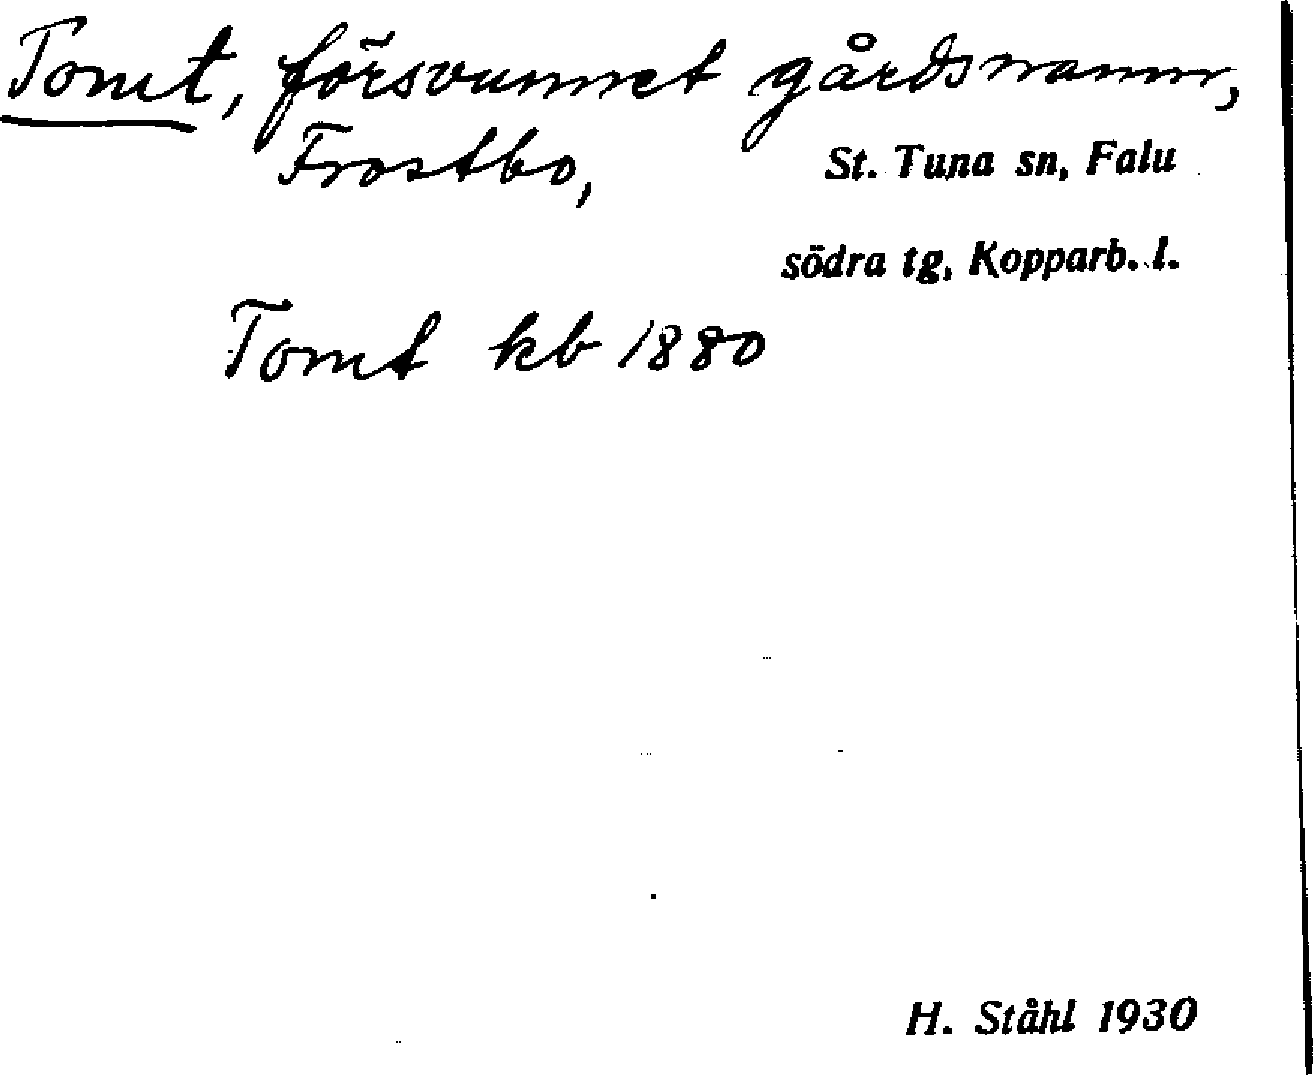 Tomt, försvunnet gårdsnamn,
Frostbo, St. Tuna sn, Falu
södra tg, Kopparb. l.
Tomt kb 1880
H. Ståhl 1930